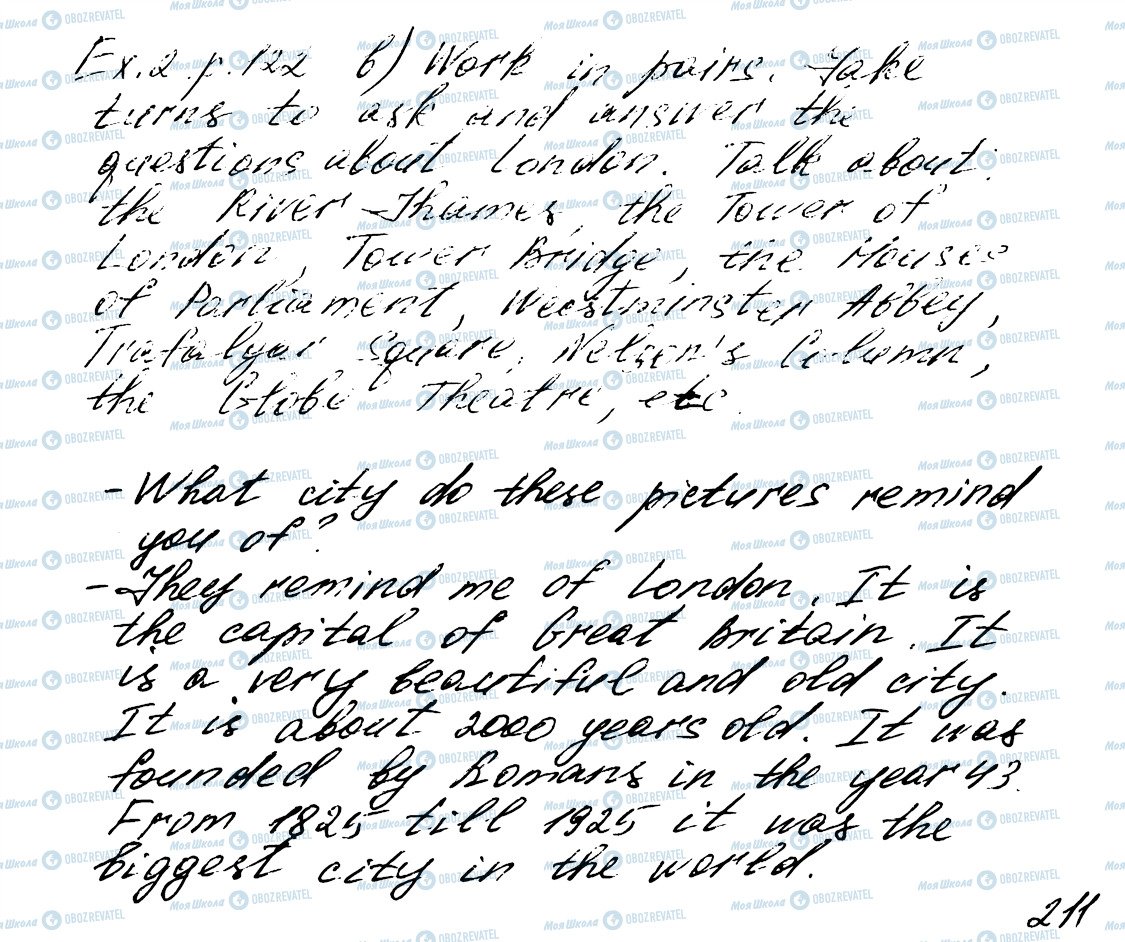 Ex.2 p.122 b) Work in pairs. Take
turns to ask and answer the
questions about London. Talk about:
the River Thames, the Tower of
London, Tower Bridge, the Houses
of Parliament, Westminster Abbey,
Trafalgar Square, Nelson's Column,
the Globe Theatre, etc.
- What city do these pictures remind
you of?
- They remind me of London. It is
the capital of Great Britain. It
is a very beautiful and old city.
It is about 2000 years old. It was
founded by Romans in the year 43.
From 1825 till 1925 it was the
biggest city in the world.
211